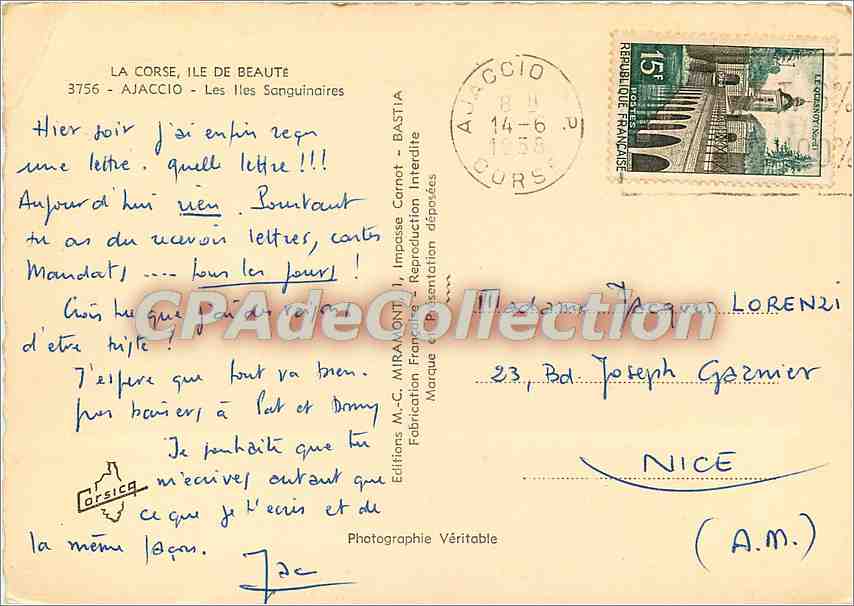 LA CORSE, ILE DE BEAUTÉ
3756 - AJACCIO - Les Iles Sanguinaires
Hier soir j'ai enfin reçu
une lettre. quelle lettre !!!
Aujourd'hui rien. Pourtant
tu as du recevoir lettres, cartes
Mandats .... tous les jours !
Crois tu que j'ai des raisons
d'etre triste !
J'espère que tout va bien.
gros baisers à Pat et
Je souhaite que tu
m'écrives autant que
ce que je t'écris et de
la même façon.
Jac
Corsica
Editions M.-C. MIRAMONT, 1, Impasse Carnot - BASTIA
Fabrication Française - Reproduction Interdite
Marque et Présentation déposées
Photographie Véritable
AJACCIO R.P
14-6
1958
CORSE
15F
POSTES
RÉPUBLIQUE FRANÇAISE
LE QUESNOY (Nord)
Madame Jacques LORENZI
23, Bd. Joseph Garnier
NICE
(A.M.)
CPAdeCollection